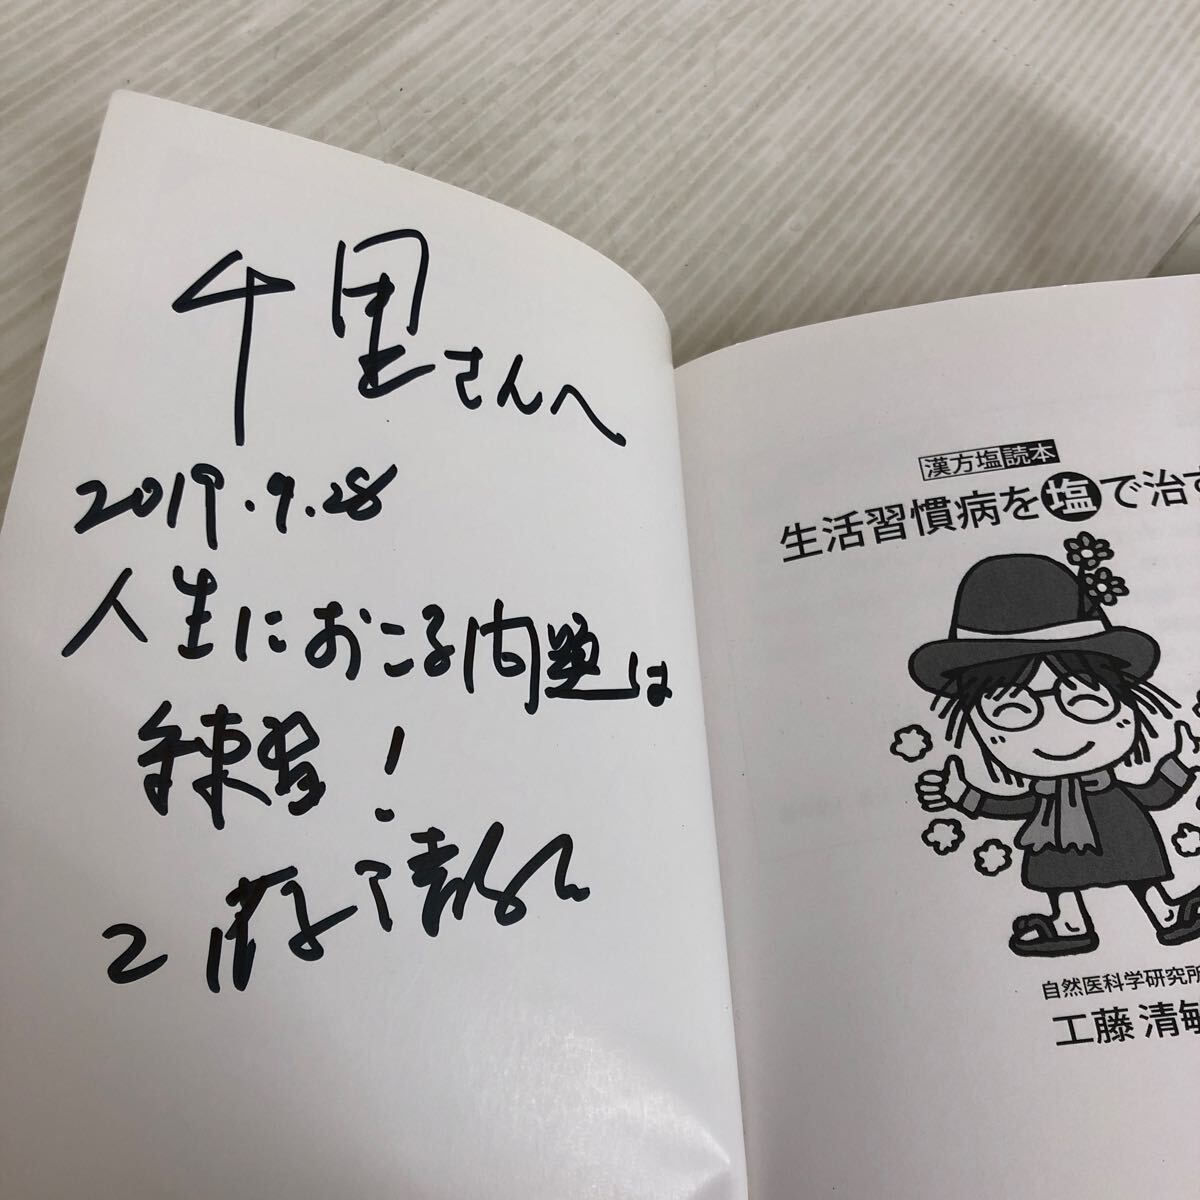 千里さんへ
2019.9.28
人生におこる問題は
練習!
工藤清敏
漢方塩読本
生活習慣病を塩で治す
自然医科学研究所
工藤 清敏